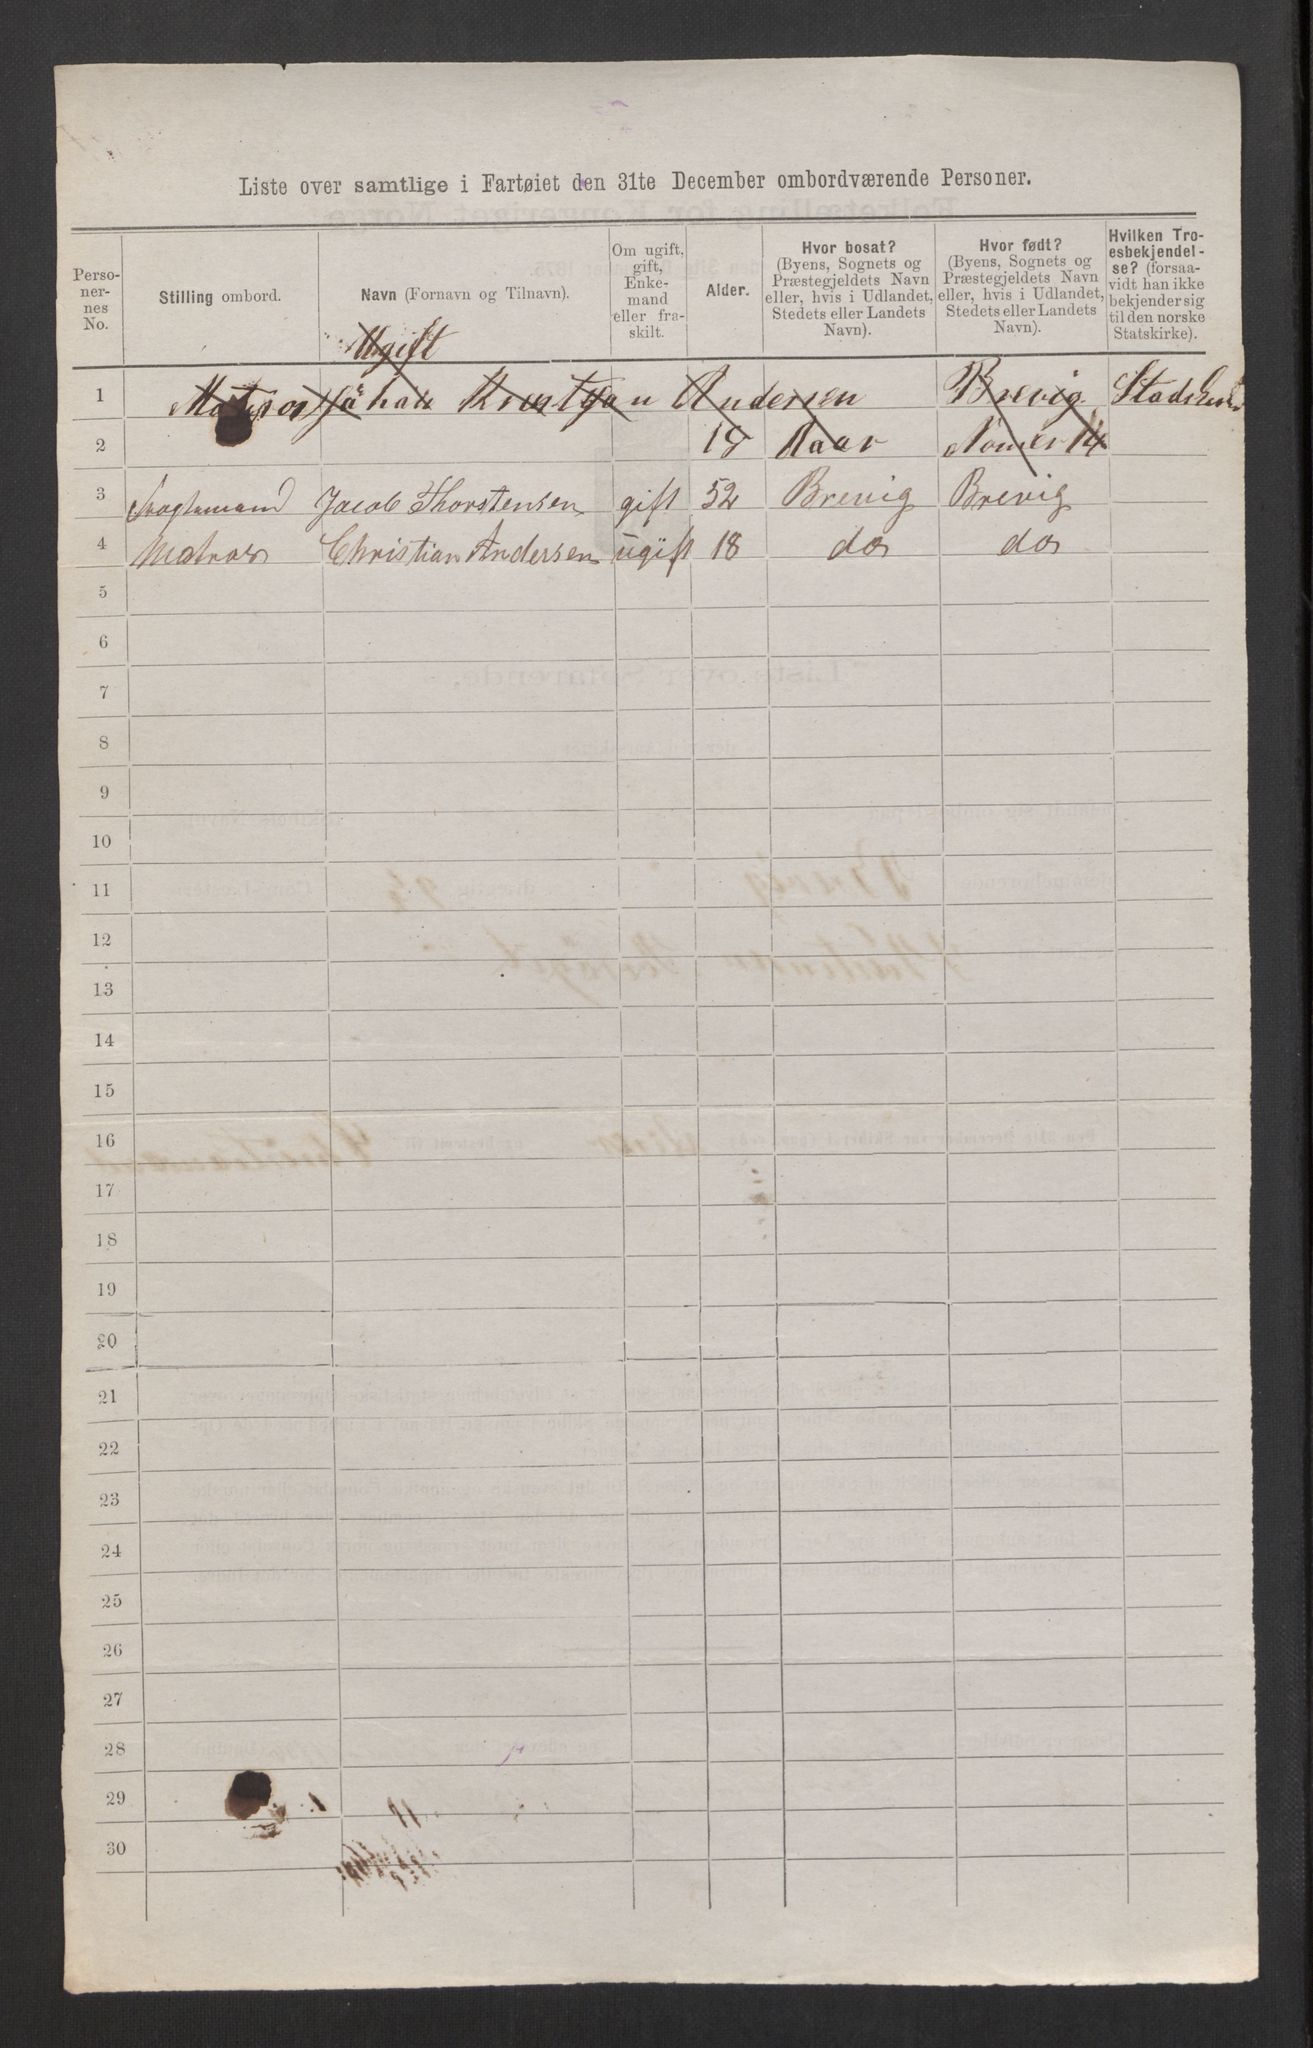 Liste over samtlige i Fartøiet den 31te December ombordværende Personer.
Perso-
ner-
nes
No.
Stilling ombord.
Navn (Fornavn og Tilnavn).
Om ugift,
gift,
Enke-
mand
eller fra-
skilt.
Alder.
Hvor bosat?
(Byens, Sognets og
Præstegjeldets Navn
eller, hvis i Udlandet,
Stedets eller Landets
Navn).
Hvor født?
(Byens, Sognets og
Præstegjeldets Navn
eller, hvis i Udlandet,
Stedets eller Landets
Navn).
Hvilken Tro-
esbekjendel-
se? (forsaa-
vidt han ikke
bekjender sig
til den norske
Statskirke).
Ugift
1 Matros Johan Kristjan Andersen Brevig
2 18 Aar Nomer 14
3 Jacob Thorstensen gift 52 Brevig Brevig
4 Matros Christian Andersen ugift 18 do do
5
6
7
8
9
10
11
12
13
14
15
16
17
18
19
20
21
22
23
24
25
26
27
28
29
30